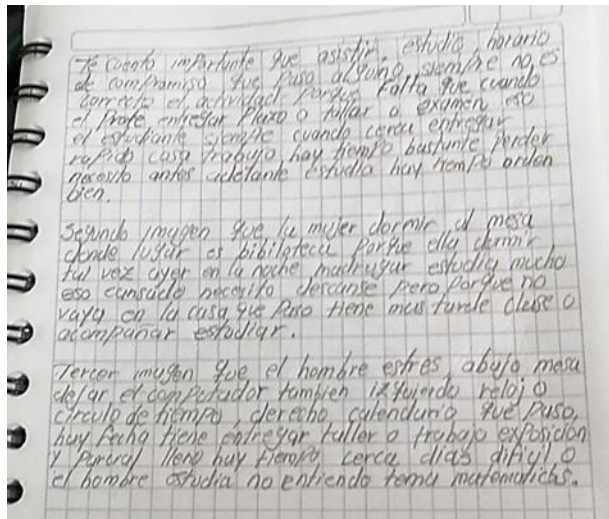 Te cuento importante que asistir, estudio, horario
de compromiso que paso alguno, siempre no, es
correcto el actividad porque Falta que cuando
el Profe entregar Plazo o tallar o examen eso
el estudiante siempre cuando cerca entregar
rapido casa trabajo, hay tiempo bastante Perder
necesito antes adelante estudia hay tiempo orden
bien.
Segundo imagen que la mujer dormir al mesa
donde lugar es bibiloteca porque ella dormir
tal vez ayer en la noche madrugar estudia mucho
eso cansado necesito descanse pero Porque no
vaya en la casa, que Paso tiene mas tarde clase o
acompañar estudiar.
Tercer imagen que el hombre estres, abajo mesa
dejar el computador tambien izquierdo reloj o
circulo de tiempo, derecho calendario que Paso,
hay fecha tiene entregar taller o trabajo exposicion
y Parcial lleno hay tiempo cerca dias dificil o
el hombre estudia no entiendo tema matematicas.